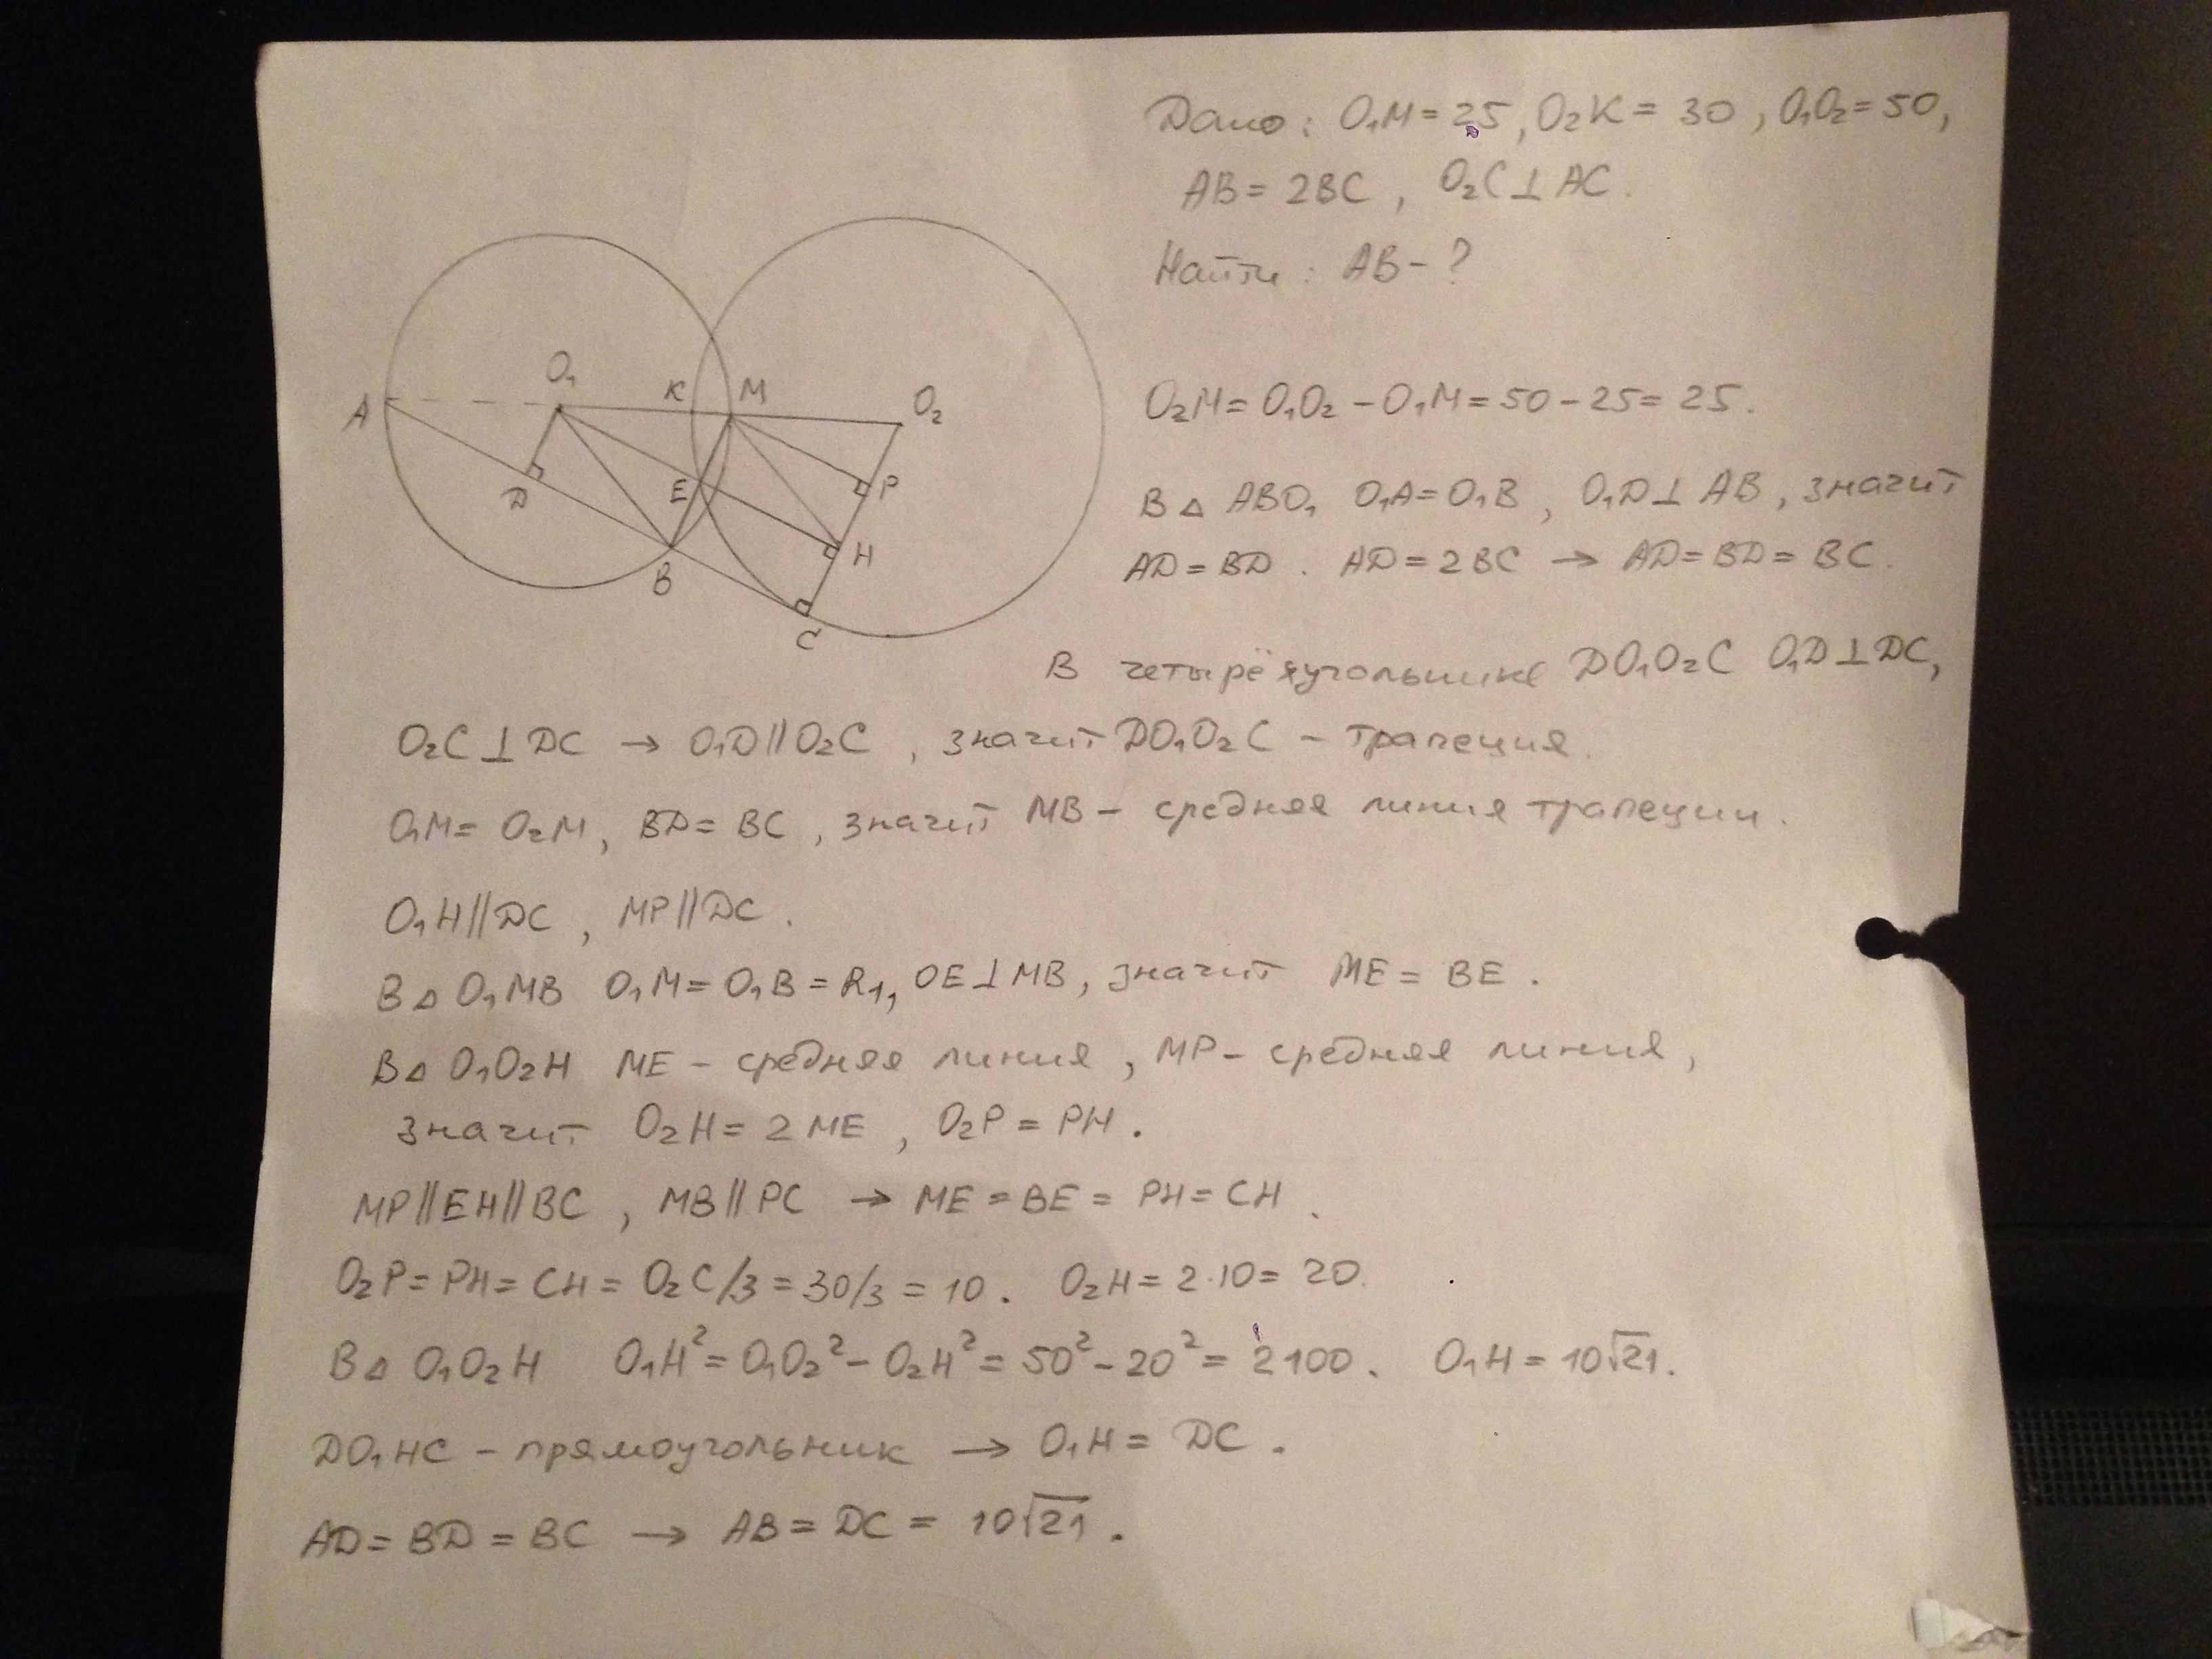 Дано: O₁M = 25, O₂K = 30, O₁O₂ = 50,
AB = 2BC, O₂C ⊥ AC.
Найти: AB - ?
A
O₁
K
M
O₂
D
E
P
H
B
C
O₂M = O₁O₂ - O₁M = 50 - 25 = 25.
В △ ABO₁ O₁A = O₁B, O₁D ⊥ AB, значит
AD = BD. AD = 2BC → AD = BD = BC.
В четырёхугольнике DO₁O₂C O₁D ⊥ DC,
O₂C ⊥ DC → O₁D || O₂C, значит DO₁O₂C - трапеция.
O₁M = O₂M, BD = BC, значит MB - средняя линия трапеции.
O₁H || DC, MP || DC.
В △ O₁MB O₁M = O₁B = R₁, OE ⊥ MB, значит ME = BE.
В △ O₁O₂H ME - средняя линия, MP - средняя линия,
значит O₂H = 2ME, O₂P = PH.
MP || EH || BC, MB || PC → ME = BE = PH = CH.
O₂P = PH = CH = O₂C/3 = 30/3 = 10. O₂H = 2·10 = 20.
В △ O₁O₂H O₁H² = O₁O₂² - O₂H² = 50² - 20² = 2100. O₁H = 10√21.
DO₁HC - прямоугольник → O₁H = DC.
AD = BD = BC → AB = DC = 10√21.